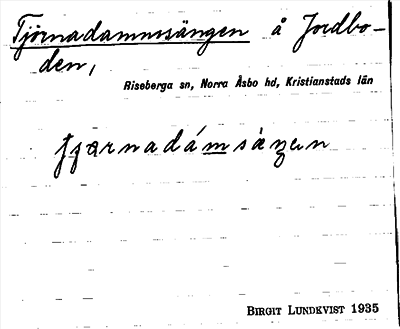 Tjörnadammsängen å Jordbo-
den,
Riseberga sn, Norra Åsbo hd, Kristianstads län
tjærnadámsàŋen
BIRGIT LUNDKVIST 1935